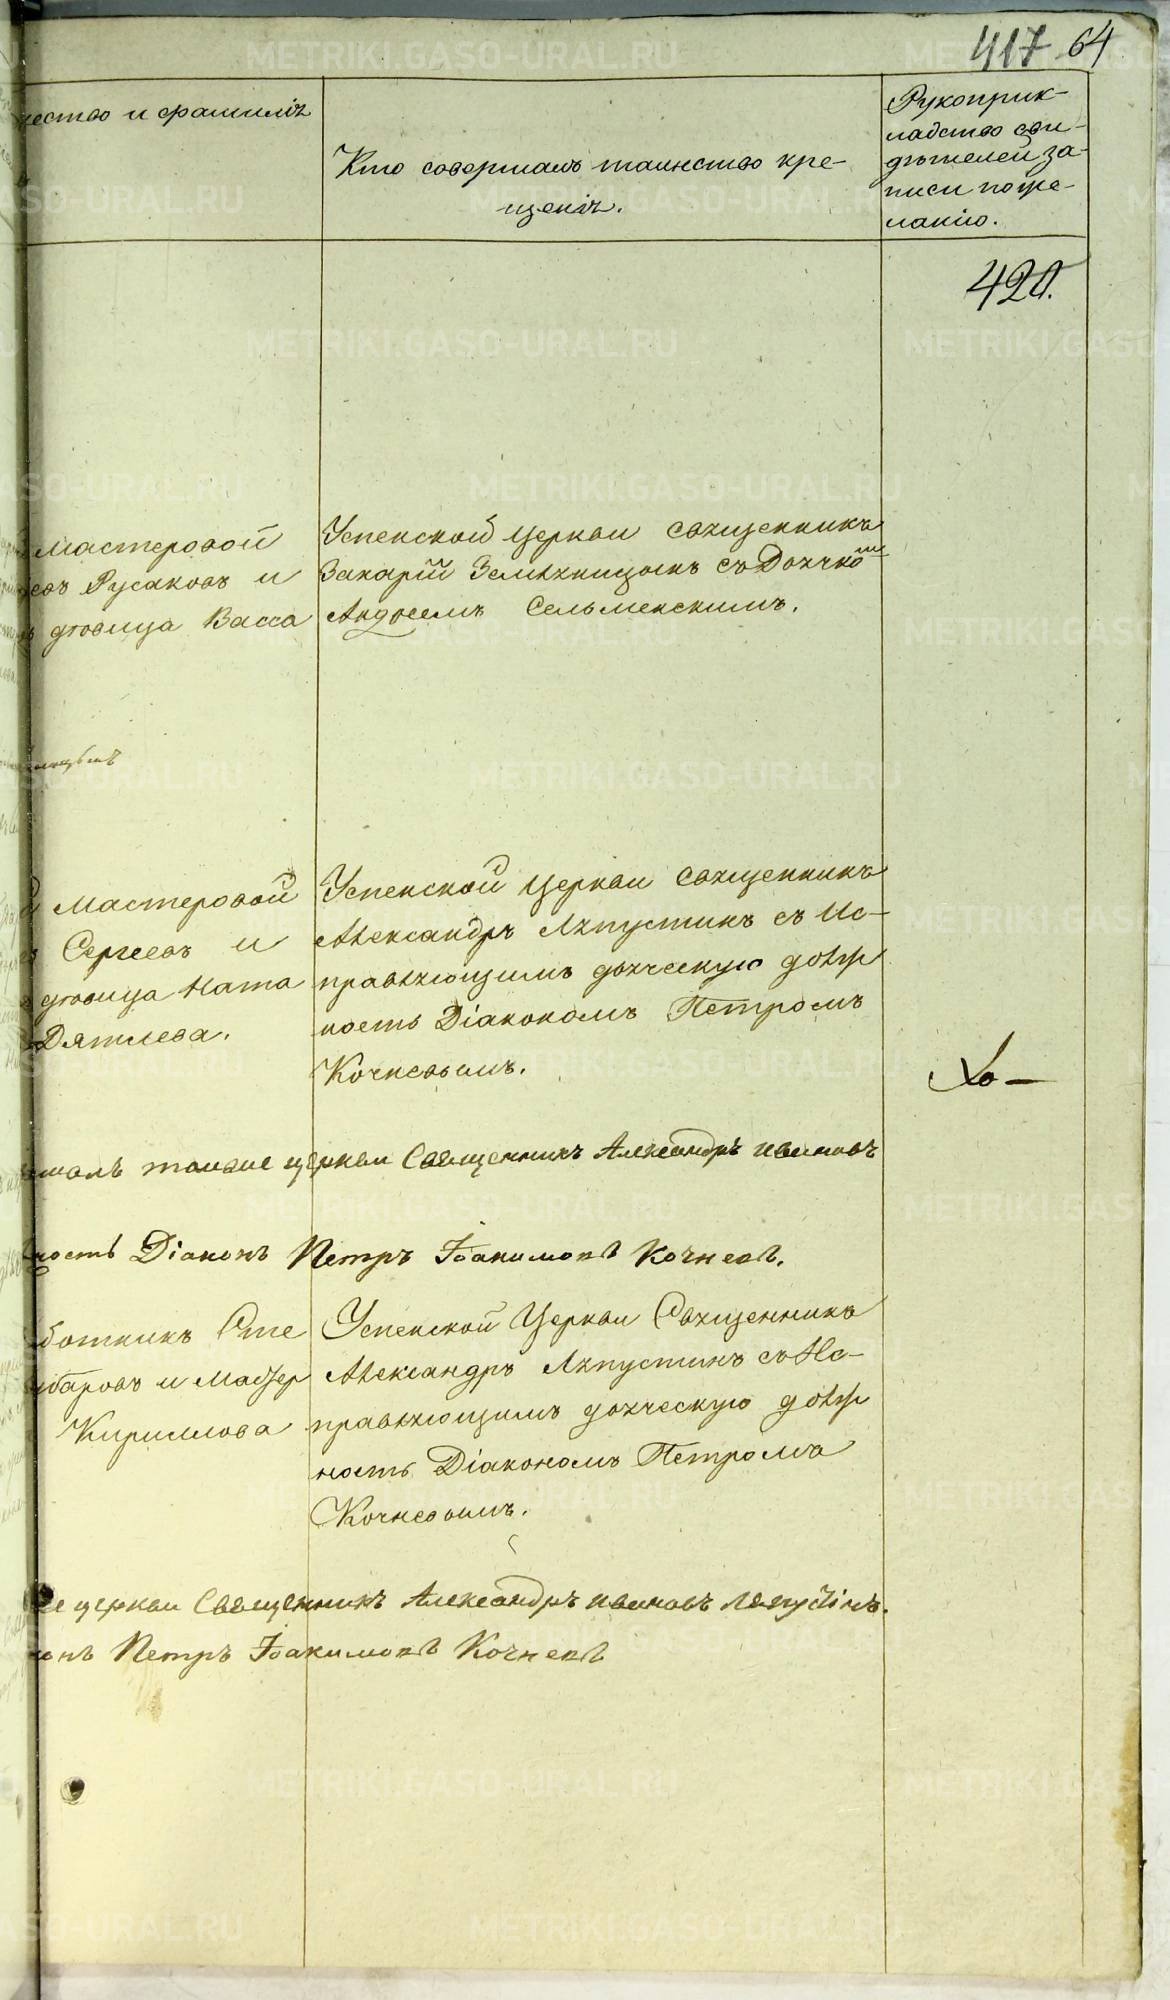 417 64
чество и фамилія
Кто совершалъ таинство кре-
щенія.
Рукоприк-
ладство сви-
дѣтелей за-
писи по же-
ланію.
420.
Мастеровой
Русаковъ и
дѣвица Васса
Успенской церкви священникъ
Захарій Земляницынъ съ Дьячко
мъ
Андреемъ Сельменскимъ.
Мастеровой
Сергеевъ и
дѣвица Ната
Дятлева.
Успенской церкви священникъ
Александръ Ляпустинъ съ Ис-
правляющимъ дьяческую долж
ность Діакономъ Петромъ
Кочневымъ.
Хо-
шалъ тоиже церкви Священникъ Александръ Ивановъ
ность Діаконъ Петръ Іоакимовъ Кочневъ.
ботникъ Сте
баровъ и Мастер
Кириллова
Успенской Церкви Священникъ
Александръ Ляпустинъ съ Ис-
правляющимъ дьяческую долж
ность Діакономъ Петромъ
Кочневымъ.
же церкви Священникъ Александръ Ивановъ Ляпустинъ.
онъ Петръ Іоакимовъ Кочневъ
METRIKI.GASO-URAL.RU